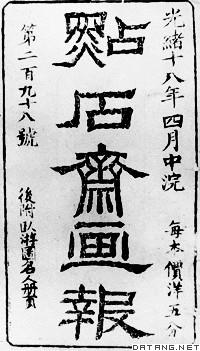 光緒十八年四月中浣
每本價洋五分
點石齋画報
第二百九十八號
後附臥游圖名人册
DATANG.NET